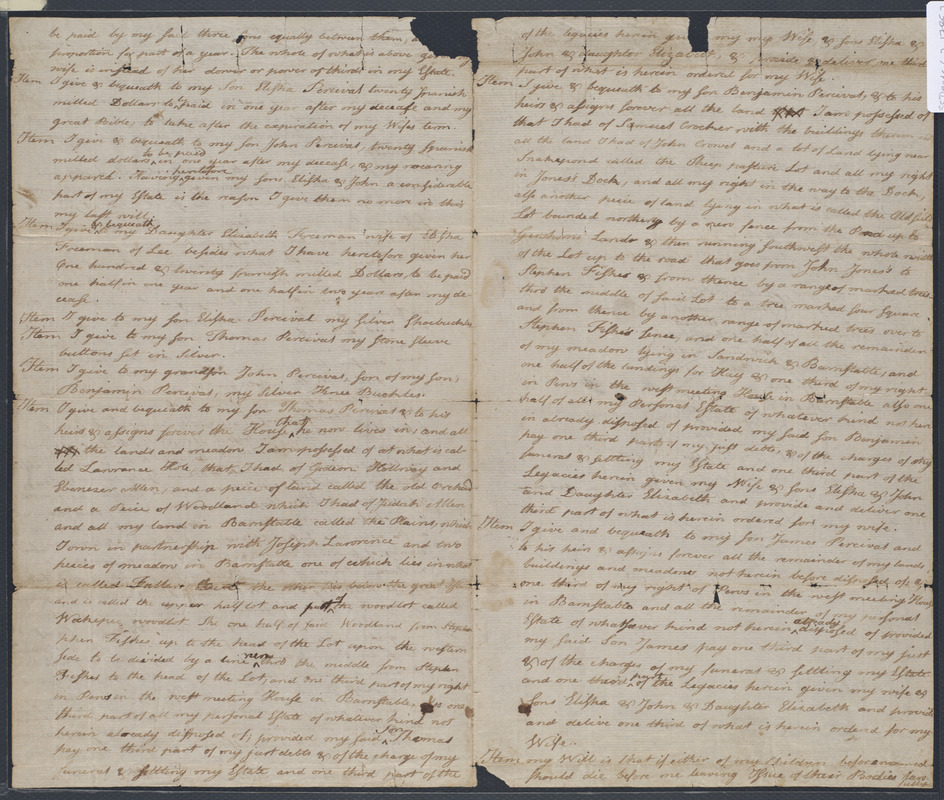 be paid by my said three sons equally between them, and
proportion for part of a year. The whole of what is above given
wife is instead of her dower or power of thirds in my Estate.
Item I give & bequeath to my Son Elisha Percival twenty Spanish
milled Dollars to paid in one year after my decease and my
great Bible, to take after the expiration of my Wifes term.
Item I give & bequeath to my son John Percival, twenty Spanish
milled dollars to be paid in one year after my decease, & my wearing
apparel. Having heretofore given my sons, Elisha & John a considerable
part of my Estate is the reason I give them no more in this
my last will.
Item I give & bequeath my Daughter Elizabeth Freeman wife of Elisha
Freeman of Lee besides what I have heretofore given her
One hundred & twenty spanish milled Dollars, to be paid
one half in one year and one half in two years after my de-
cease.
Item I give to my son Elisha Percival my Silver Shoebuckles
Item I give to my son Thomas Percival my Stone Sleeve
buttons set in Silver.
Item I give to my grandson John Percival, son of my son,
Benjamin Percival, my Silver Knee Buckles.
Item I give and bequeath to my son Thomas Percival & to his
heirs & assigns forever the House that he now lives in, and all
the lands and meadow I am possessed of at what is cal-
led Lawrence Hole that I had of Gideon Hollway and
Ebenezer Allen, and a peice of land called the old Orchard
and a Peice of Woodland which I had of Jedediah Allen
and all my land in Barnstable called the Plains, which
I own in partnership with Joseph Lawrence and two
pieces of meadow in Barnstable one of which lies in what
is called the other is below the great
and is called the upper half lot and part of the woodlot called
Wakepee woodlot. The one half of said Woodland from Stephen
phen Fishes up to the head of the Lot upon the western
side to be divided by a line run thro the middle from Stephen
Fishes to the head of the Lot, and one third part of my right
in Pews in the west meeting House in Barnstable. Also one
third part of all my personal Estate of whatever kind not
herein already disposed of, provided my said Son Thomas
pay one third part of my just debts & of the charge of my
funeral & settling my Estate and one third part of the
of the legacies herein given my Wife & sons Elisha &
John & Daughter Elizabeth, & provide & deliver one third
part of what is herein ordered for my Wife.
Item I give & bequeath to my Son Benjamin Percival, & to his
heirs & assigns forever all the land I am possessed of
that I had of Samuel Crocker with the buildings thereon
all the land I had of John Crowel and a lot of Land lying near
Snakepond called the Sheep pasture Lot and all my right
in Jones's Dock, and all my right in the way to the Dock,
also another piece of land lying in what is called the Old field
Lot bounded northerly by a run fence from the Pond up to
Lands & then running southwest the whole width
of the Lot up to the road that goes from John Jones's to
Stephen Fishes & from thence by a range of marked trees
thro the middle of said Lot to a tree marked four square
and from thence by another range of marked trees over to
Stephen Fishes fence, and one half of all the remainder
of my meadow lying in Sandwich & Barnstable, and
one half of the landings for Hay & one third of my right
in Pews in the west meeting House in Barnstable also one
half of all my Personal Estate of whatever kind not here
in already disposed of provided my said Son Benjamin
pay one third part of my just debts, & of the charges of my
funeral & settling my Estate and one third part of the
Legacies herein given my Wife & Sons Elisha & John
and Daughter Elizabeth and provide and deliver one
third part of what is herein ordered for my wife.
Item I give and bequeath to my son James Percival and
to his heirs & assigns forever all the remainder of my lands
buildings and meadow not herein before disposed of; &
one third of my right of Pews in the west meeting House
in Barnstable and all the remainder of my personal
Estate of whatsoever kind not herein already disposed of provided
my said Son James pay one third part of my just
& of the charges of my funeral & settling my Estate
and one third part of the Legacies herein given my wife &
Sons Elisha & John & Daughter Elizabeth and provide
and delive one third of what is herein ordered for my
Wife.
Item my Will is that if either of my Children before named
should die before me leaving Issue of their Bodies